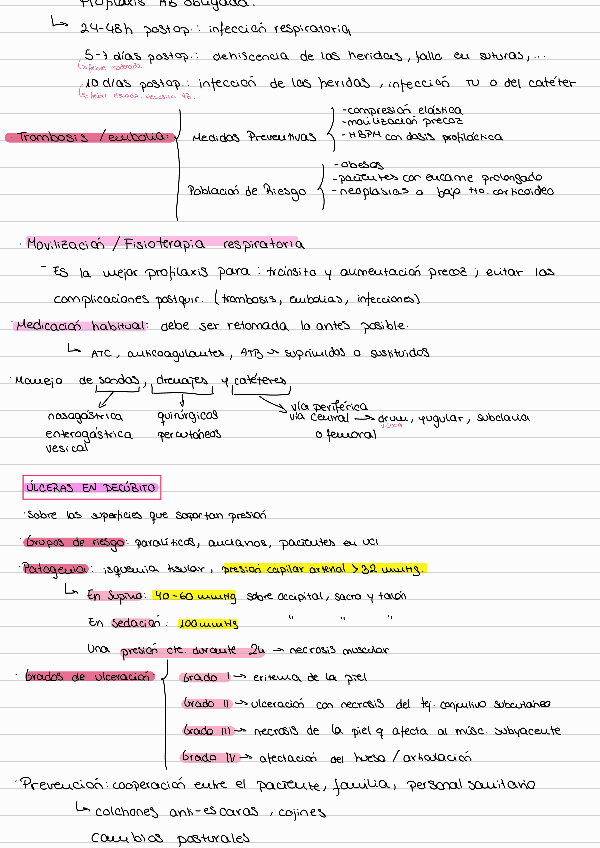 Profilaxis AB obligada.
↳ 24-48h postop.: infección respiratoria
5-7 días postop.: dehiscencia de las heridas, fallo en suturas,...
↳ fiebre moderada
10 días postop.: infección de las heridas, infección TU o del catéter
↳ fiebre elevada
Trombosis/embolia:
Medidas Preventivas
-compresión elástica
-movilización precoz
-HBPM con dosis profiláctica
Población de Riesgo
-obesos
-pacientes con encame prolongado
-neoplasias o bajo tto. corticoideo
·Movilización/Fisioterapia respiratoria
- Es la mejor profilaxis para: tránsito y alimentación precoz, evitar las
complicaciones postquir. (trombosis, embolias, infecciones)
·Medicación habitual: debe ser retomada lo antes posible.
↳ ATC, anticoagulantes, ATB → suprimidos o sustituidos
·Manejo de sondas, drenajes y catéteres
nasogástrica
enterogástrica
vesical
quirúrgicos
percutáneos
vía periférica
vía central → drum, yugular, subclavia
o femoral
ÚLCERAS EN DECÚBITO
·Sobre las superficies que soportan presión
·Grupos de riesgo: paralíticos, ancianos, pacientes en UCI
·Patogenia: isquemia tisular, presión capilar arterial >32 mmHg.
↳ En supino: 40-60 mmHg sobre occipital, sacro y talón
En sedación: 100mmHg " " "
Una presión cte. durante 2h → necrosis muscular
·Grados de ulceración
Grado I → eritema de la piel
Grado II → ulceración con necrosis del tej. conjuntivo subcutáneo
Grado III → necrosis de la piel q afecta al músc. subyacente
Grado IV → afectación del hueso/articulación
·Prevención: cooperación entre el paciente, familia, personal sanitario
↳ colchones anti-escaras, cojines
Cambios posturales